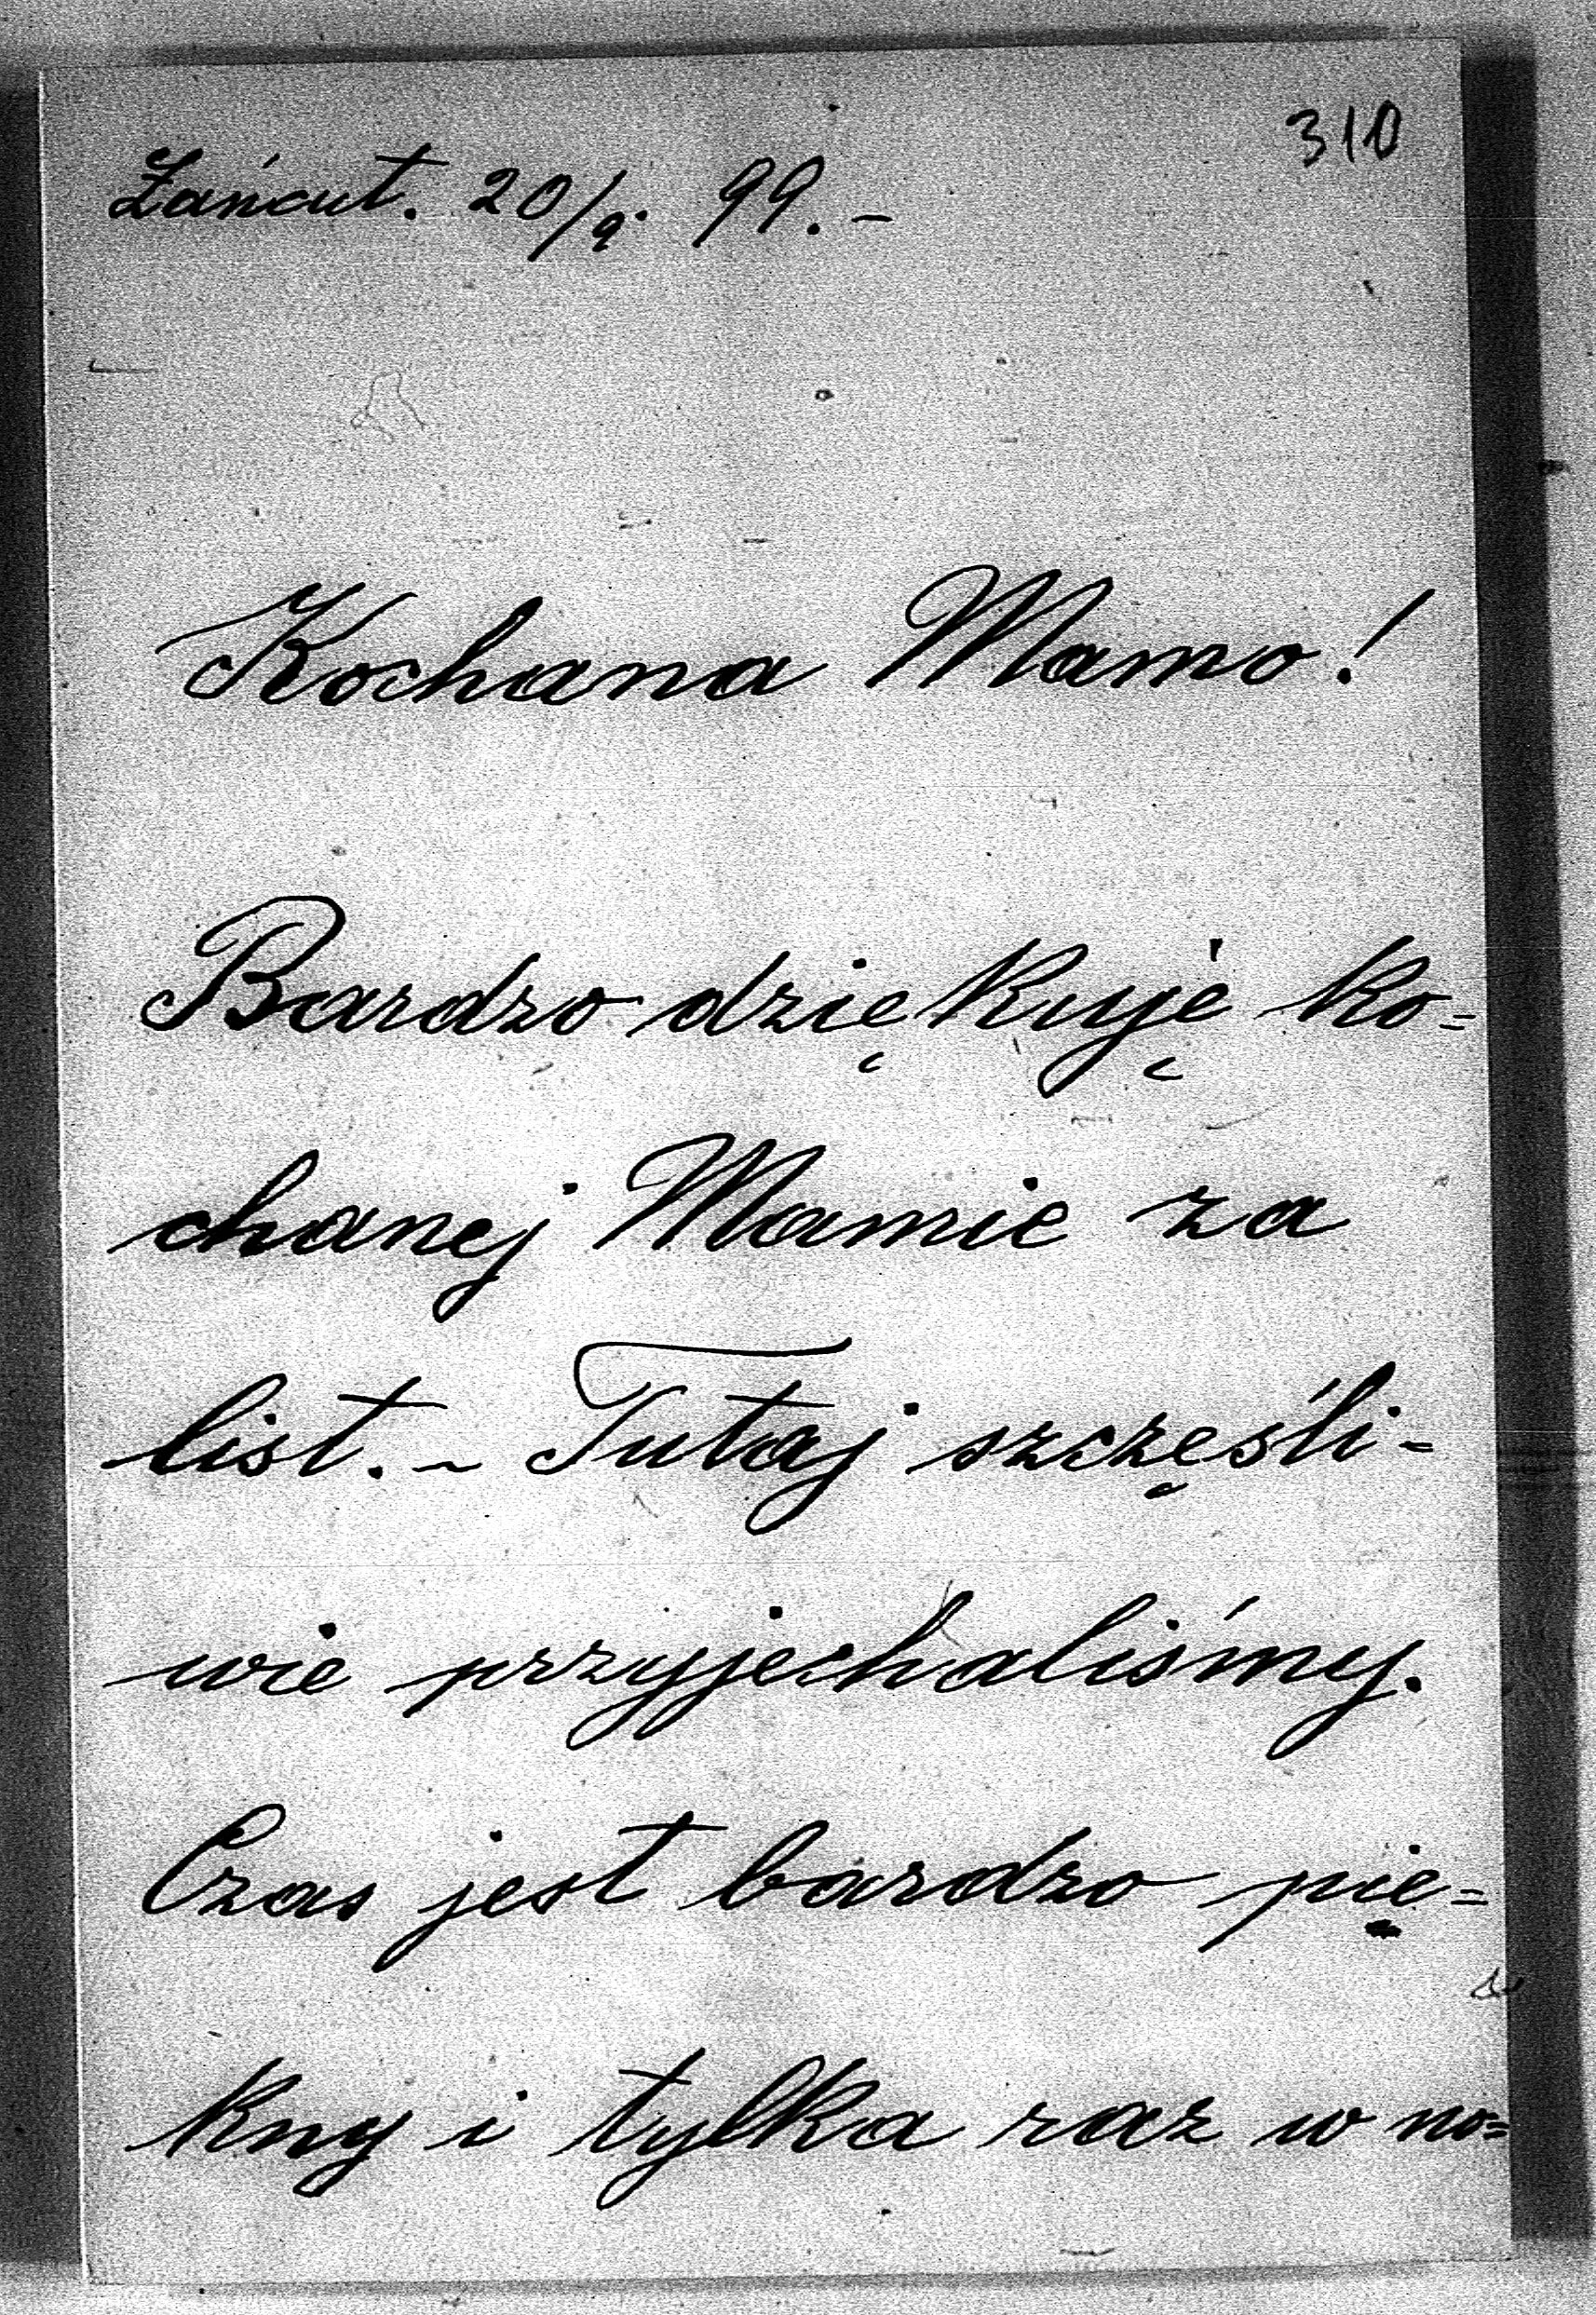 310
Łańcut. 20/9. 99. –
Kochana Mamo!
Bardzo dziękuję ko=
chanej Mamie za
list. – Tutaj szczęśli-
wie przyjechaliśmy.
Czas jest bardzo pię=
kny i tylka raz w no=